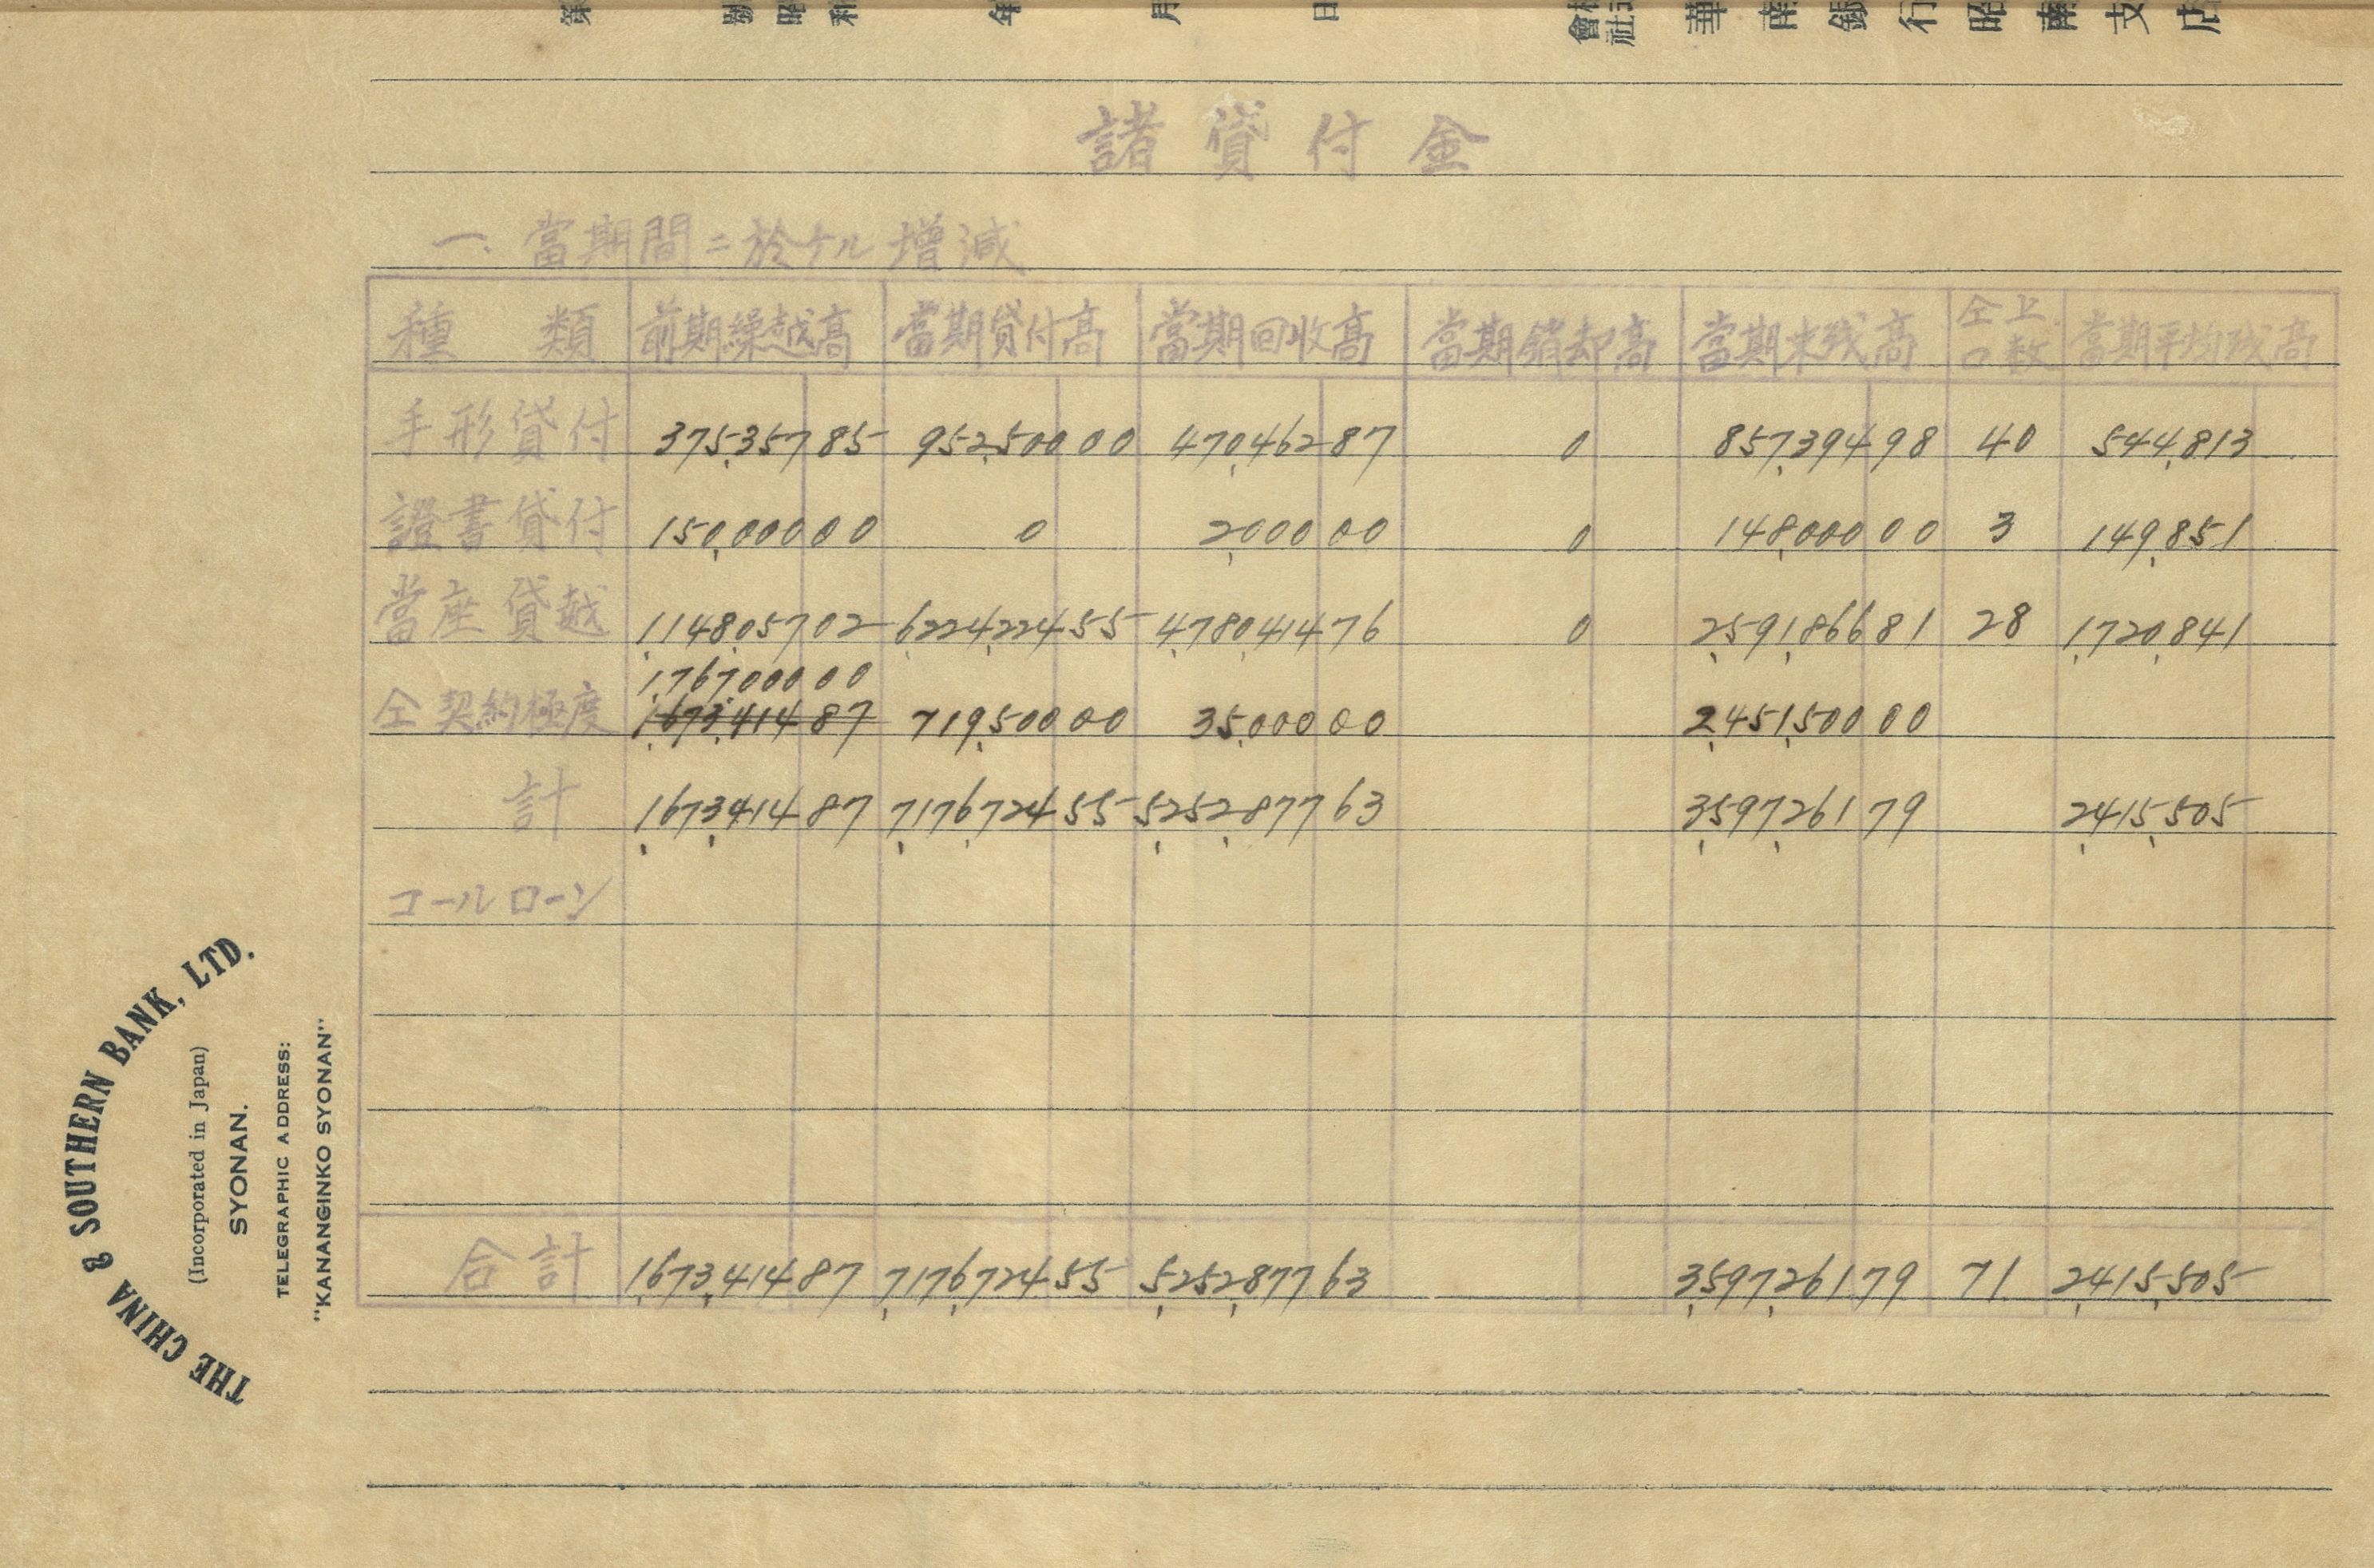 第 號 昭和 年 月 日 華南銀行昭南支店
諸貸付金
一、當期間ニ於ケル增減
種類 前期繰越高 當期貸付高 當期回收高 當期銷却高 當期末残高 仝上口数 當期平均残高
手形貸付 375,357 85 952,500 00 470,462 87 0 857,394 98 40 544,813
證書貸付 150,000 00 0 2,000 00 0 148,000 00 3 149,851
當座貸越 1,148,057 02 6,224,224 55 4,780,414 76 0 2,591,866 81 28 1,720,841
1,767,000 00
仝契約極度 1,673,414 87 719,500 00 35,000 00 2,451,500 00
計 1,673,414 87 7,176,724 55 5,252,877 63 3,597,261 79 2,415,505
コールローン
合計 1,673,414 87 7,176,724 55 5,252,877 63 3,597,261 79 71 2,415,505
THE CHINA & SOUTHERN BANK, LTD.
(Incorporated in Japan)
SYONAN.
TELEGRAPHIC ADDRESS:
"KANANGINKO SYONAN"